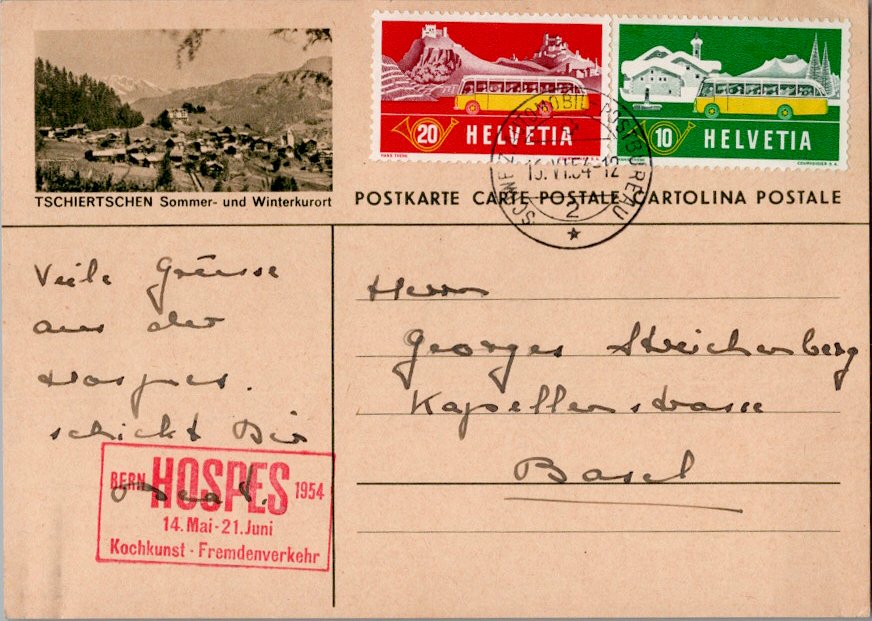 20 HELVETIA
HANS THÖNI
10 HELVETIA
COURVOISIER S.A.
SCHWEIZ. AUTOMOBIL-POSTBUREAU
16.VI.54-12
2
TSCHIERTSCHEN Sommer- und Winterkurort
POSTKARTE CARTE POSTALE CARTOLINA POSTALE
Viele Grüsse
aus der
Hospes.
schickt Dir
Herrn
Georges Streichenberg
Kapellenstrasse
Basel
BERN HOSPES 1954
14. Mai - 21. Juni
Kochkunst - Fremdenverkehr